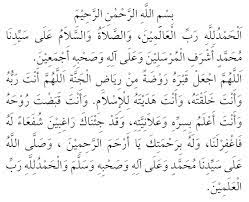 بِسْمِ اللَّهِ الرَّحْمٰنِ الرَّحِيْمِ
اَلْحَمْدُلِلَّهِ رَبِّ الْعَالَمِيْنَ، وَالصَّلَاةُ وَالسَّلَامُ عَلَى سَيِّدِنَا
مُحَمَّدٍ أَشْرَفِ الْمُرْسَلِيْنَ وَعَلَى آلِهِ وَصَحْبِهِ أَجْمَعِيْنَ.
اَللَّهُمَّ اجْعَلْ قَبْرَهُ رَوْضَةً مِنْ رِيَاضِ الْجَنَّةِ اَللَّهُمَّ أَنْتَ رَبُّهُ
وَأَنْتَ خَلَقْتَهُ، وَأَنْتَ هَدَيْتَهُ لِلْإِسْلَامِ. وَأَنْتَ قَبَضْتَ رُوْحَهُ
وَأَنْتَ أَعْلَمُ بِسِرِّهِ وَعَلَانِيَتِهِ، وَقَدْ جِئْنَاكَ رَاغِبِيْنَ شُفَعَاءَ لَهُ
فَاغْفِرْلَنَا، وَلَهُ بِرَحْمَتِكَ يَا أَرْحَمَ الرَّحِمِيْنَ ، وَصَلَّى اللَّهُ
عَلَى سَيِّدِنَا مُحَمَّدٍ وَعَلَى آلِهِ وَصَحْبِهِ وَسَلَّمَ وَالْحَمْدُلِلَّهِ رَبِّ
الْعٰلَمِيْنَ.